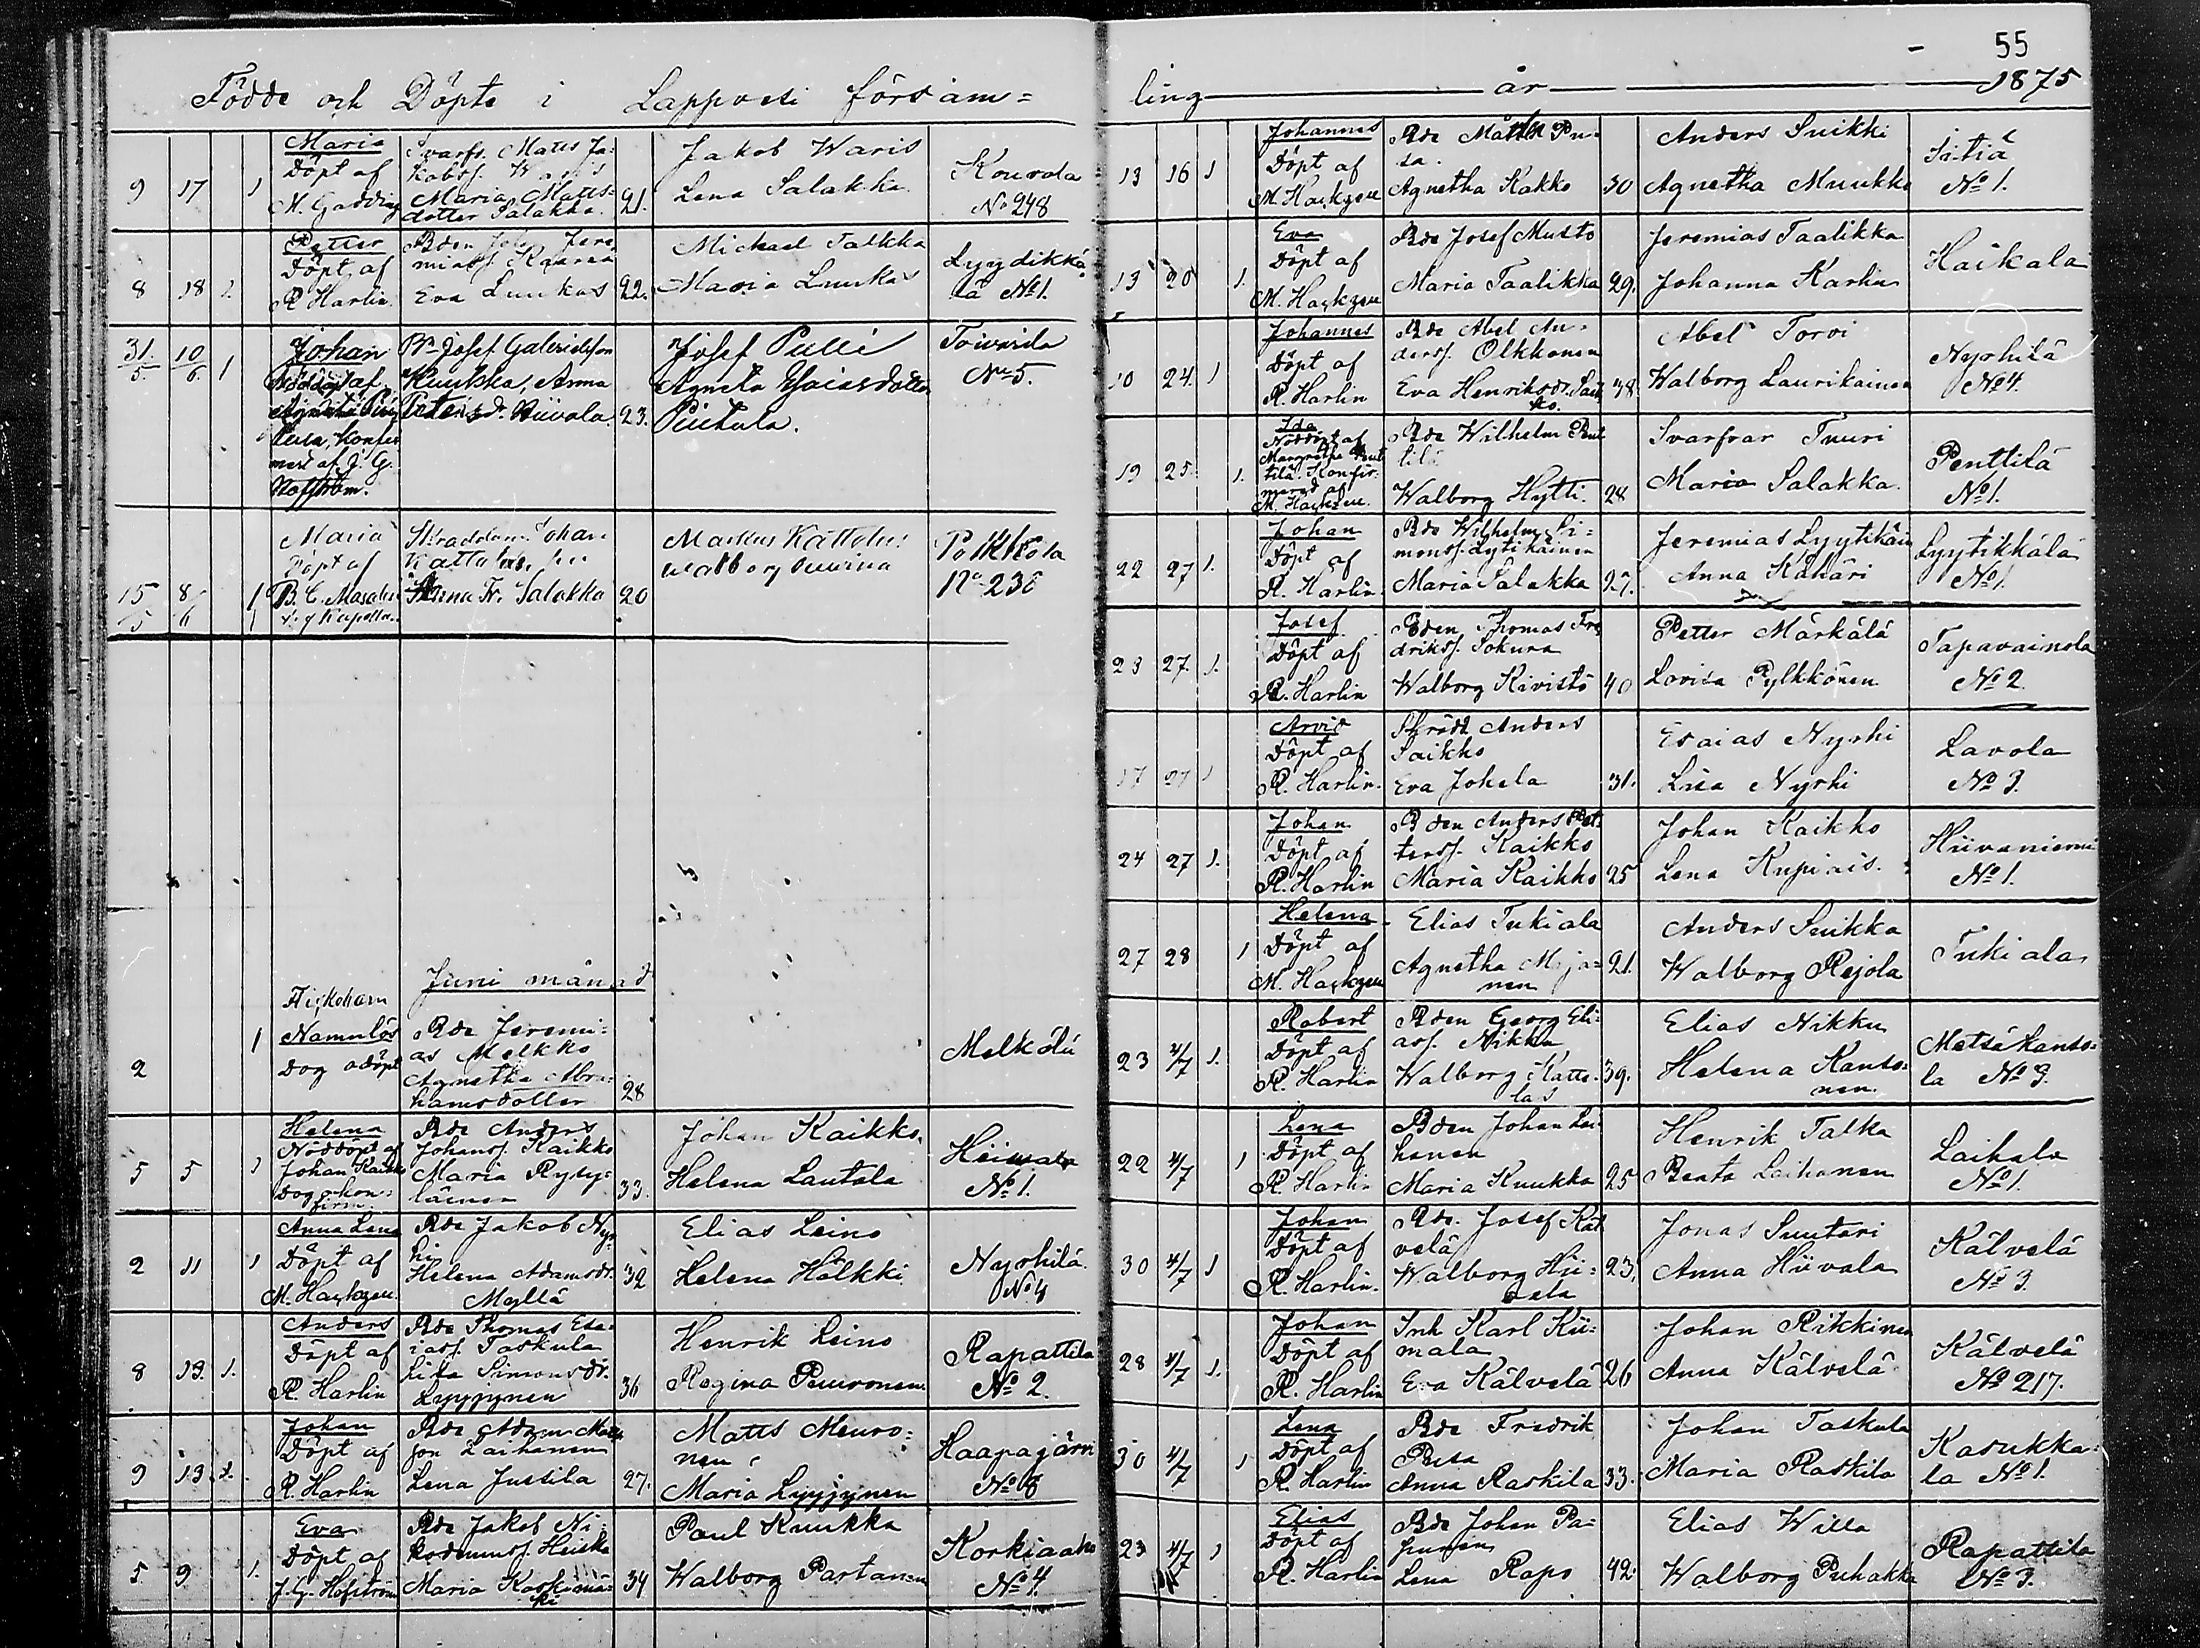 55
Födde och Döpte i Lappvesi försam=
ling år 1875
9 17 1
Maria
Döpt af
M. Gadding
Svarfv. Matts Ja-
kobss. Waris
Maria Matts-
dotter Salakka. 21.
Jakob Waris
Lena Salakka
Kourola
No 248
8 18 1.
Petter
Döpt af
R. Harlin.
Bden Joh. Jere
miass. Kaarna
Eva Luukas 22.
Michael Talkka
Maria Luukas
Lyydikkä
lä No 1.
31/5. 10/6. 1
Johan
Nöddöpt af
konfir
merad af J. G.
Hoffström.
Bn Josef Gabrielsson
Kuukka, Anna
Petersd. Hiivola. 23.
Josef Pulli
Agneta
Toivarila
No 5.
15/5 8/6 1
Maria
Döpt af
B. C.
v. Kapellan.
Johan
Anna Fr. Salakka 20
Markus
Walborg
Polkkola
No 238
Juni månad
2 1
Flickebarn
Namnlös
Dog odöpt
Bde Jeremi=
as Melkko
Agnetha Abra-
hamsdotter 28
Melkölä
5 5 1
Helena
Nöddöpt af
Johan Kaikko
Dog okon-
firm.
Bde Anders
Johanss. Kaikko
Maria Rytsy-
läinen 33.
Johan Kaikko
Helena Lautala
Heimala
No 1.
2 11 1
Anna Lena
Döpt af
M. Hackzell.
Bde Jakob Nyr
hi
Helena Adamsdr.
Myllä 32
Elias Leino
Helena Hälkki
Nyrhilä
No 4
8 13. 1.
Anders
Döpt af
R. Harlin
Bde Thomas Esa-
iass. Taskula
Lisa Simonsdr.
Lyyjynen 36
Henrik Leino
Regina Peuronen
Rapattila
No 2.
9 13 1.
Johan
Döpt af
R. Harlin
Bde Adam Matts
son Laihanen
Lena Jussila 27.
Matts Meuro-
nen
Maria Lyyjynen
Haapajärvi
No 8
5 9 1.
Eva
Döpt af
J. G. Hofström
Bde Jakob Ni-
kodemuss. Heiska
Maria Korkiamä-
ki 34
Paul Kuukka
Walborg Partanen
Korkiaaho
No 4.
13 16 1
Johannes
Döpt af
M. Hackzell
Bde Matts Pu-
sa.
Agnetha Kakko 30
Anders Suikki
Agnetha Muukko
Sitiä
No 1.
13 20 1.
Eva
Döpt af
M. Hackzell
Bde Josef Musto
Maria Taalikka 29.
Jeremias Taalikka
Johanna Karhu
Haikala
10 24. 1
Johannes
Döpt af
R. Harlin
Bde Abel An-
derss. Olkkonen
Eva Henriksdr. Saik
ko. 38.
Abel Torvi
Walborg Laurikainen
Nyrhilä
No 4.
19 25. 1.
Ida
Nöddöpt af
Margretha Pent
tilä. Konfir-
merad af
M. Hackzell.
Bde Wilhelm Pent
tilä
Walborg Hytti. 28
Svarfvar Tuuri
Maria Salakka.
Penttilä
No 1.
22 27 1.
Johan
Döpt af
R. Harlin
Bde Wilhelm Si=
monss. Lytikäinen
Maria Salakka 27.
Jeremias Lyytikäin
Anna Kähäri
Lyytikkälä
No 1.
23 27. 1.
Josef
Döpt af
R. Harlin
Bden Thomas Fre
drikss. Sokura
Walborg Kivistö 40
Petter Märkälä
Lovisa Pylkkönen
Tapavainola
No 2.
17 27 1
Arvid
Döpt af
R. Harlin.
Skrädd Anders
Saikko
Eva Johela 31.
Esaias Nyrhi
Lisa Nyrhi
Lavola
No 3.
24 27 1.
Johan
Döpt af
R. Harlin
Bden Anders Pet-
terss. Kaikko
Maria Kaikko 25
Johan Kaikko
Lena Kupiais.
Hiivaniemi
No 1.
27 28 1
Helena
Döpt af
M. Hackzell
Elias Tukiala
Agnetha Maja-
nen 21.
Anders Suikka
Walborg Rejola
Tukiala
23 4/7 1.
Robert
Döpt af
R. Harlin
Bden Georg Eli=
ass. Nikku
Walborg Katto-
las 39.
Elias Nikku
Helena Kanto-
nen.
Metsäkanto-
la No 3.
22 4/7 1
Lena
Döpt af
R. Harlin
Bden Johan Lai
hanen
Maria Kuukka 25
Henrik Talka
Beata Laihanen
Laihala
No 1.
30 4/7 1
Johan
Döpt af
R. Harlin.
Bde. Josef Käl
velä
Walborg Hii-
vala 23.
Jonas Suutari
Anna Hiivala
Kälvelä
No 3.
28 4/7 1.
Johan
Döpt af
R. Harlin
Inh. Karl Kii-
mala
Eva Kälvelä 26
Johan Rikkinen
Anna Kälvelä
Kälvelä
No 217.
30 4/7 1
Lena
Döpt af
R. Harlin
Bde Fredrik
Pusa
Anna Raskila 33.
Johan Taskula
Maria Raskila
Kasukka-
la No 1.
23 4/7 1
Elias
Döpt af
R. Harlin
Bde Johan Pa-
punen
Lena Rapo 42.
Elias Willa
Walborg Puhakka
Rapattila
No 3.